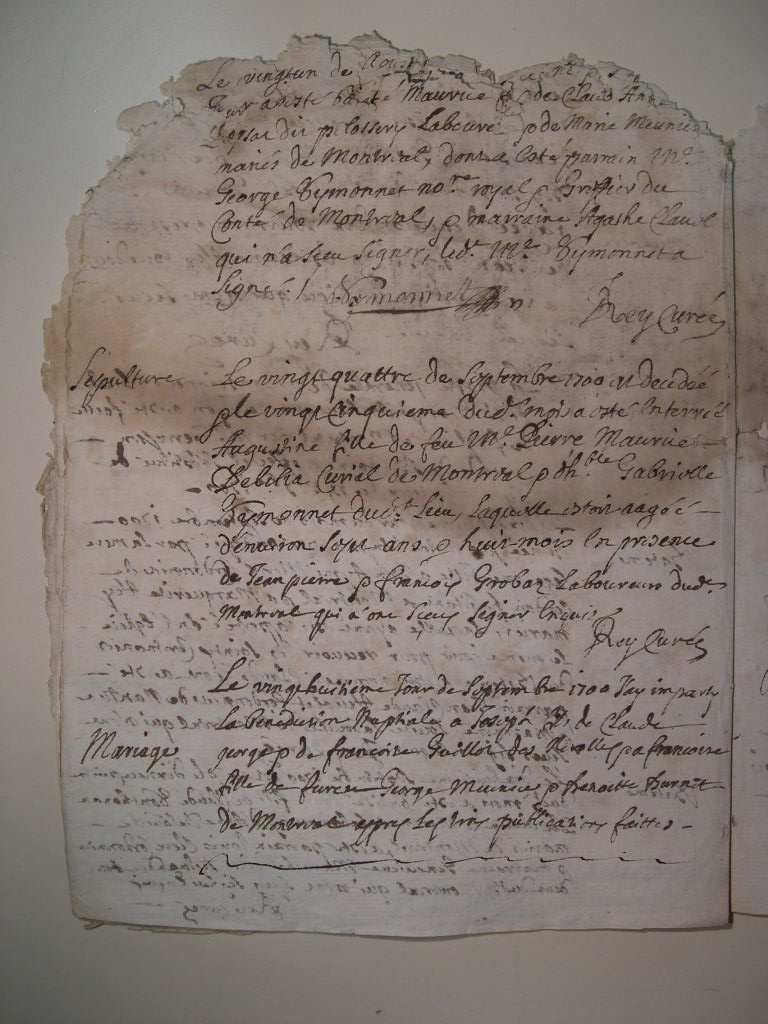 Le vingtun de Aoust
a esté baté Maurice de Claud Anne
dit Labeure p de Marie Meunier
mariés de Montreal, dont a esté parrain Mr.
George Vymonnet no.re royal p Greffier du
Conté de Montreal, p marraine Agathe Claud
qui n'a sceu signer, led.t Mr. Vymonnet a
signé / Vymonnet
Rey Curé
Sepulture Le vingt quattre de Septembre 1700 est decedée
p le vingt cinquieme dud.t moi a esté Interrée
Augustine fille de feu Mr. Pierre Maurice
Debilia Curial de Montreal p d'h.ble Gabrielle
Vymonnet dud.t Lieu, laquelle estoit aagée
d'environ sept ans p huit mois En presence
de Jean pierre p francois Grobaz Laboureurs dud.t
Montreal qui n'ont sceus signer Enquis
Rey Curé
Le vingt huitieme Jour de Septembre 1700 Jay imparty
La benediction Nuptiale a Joseph f. de Claude
Mariage p de francoise Guillot des p a francoise
fille de George Meunier p Burnet
de Montreal appres Les trois publications faittes